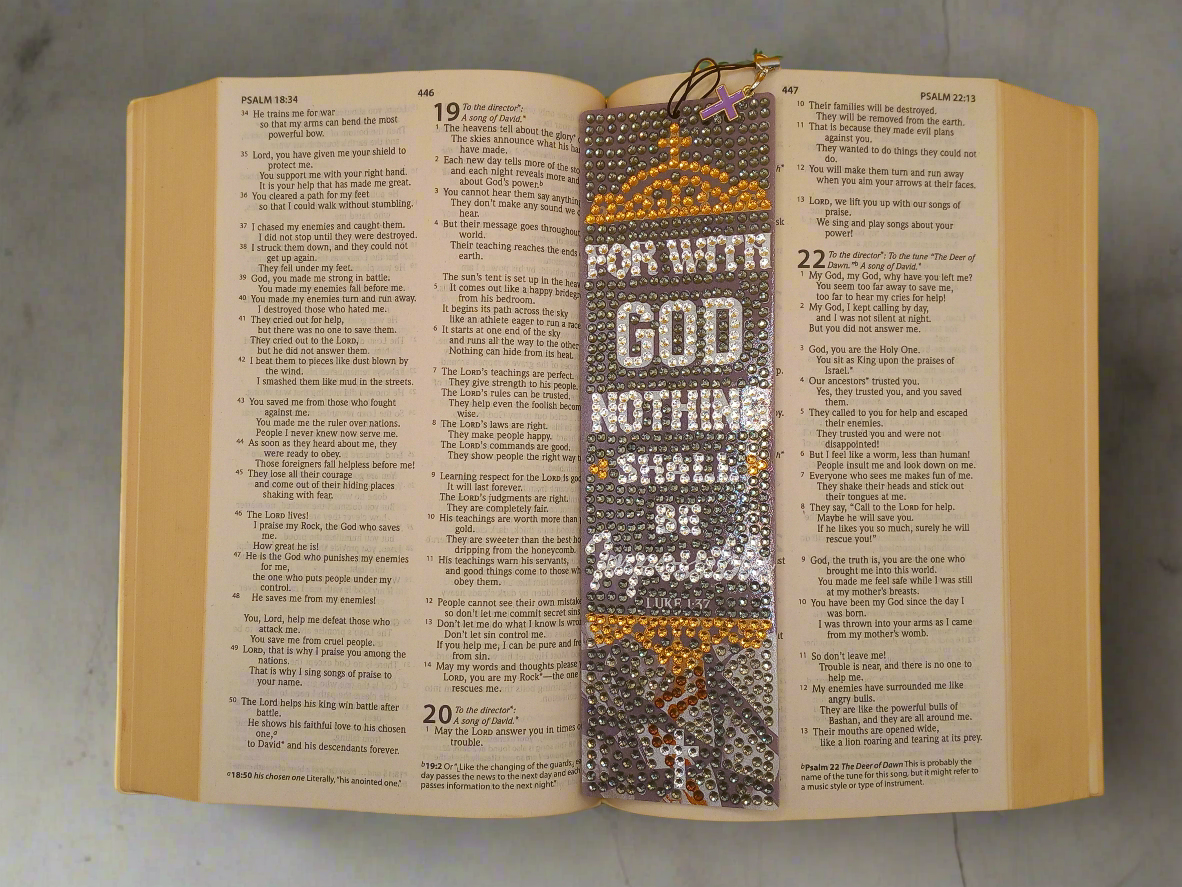 PSALM 18:34
34 He trains me for war
so that my arms can bend the most
powerful bow.
35 Lord, you have given me your shield to
protect me.
You support me with your right hand.
It is your help that has made me great.
36 You cleared a path for my feet
so that I could walk without stumbling.
37 I chased my enemies and caught them.
I did not stop until they were destroyed.
38 I struck them down, and they could not
get up again.
They fell under my feet.
39 God, you made me strong in battle.
You made my enemies fall before me.
40 You made my enemies turn and run away.
I destroyed those who hated me.
41 They cried out for help,
but there was no one to save them.
They cried out to the LORD,
but he did not answer them.
42 I beat them to pieces like dust blown by
the wind.
I smashed them like mud in the streets.
43 You saved me from those who fought
against me.
You made me the ruler over nations.
People I never knew now serve me.
44 As soon as they heard about me, they
were ready to obey.
Those foreigners fall helpless before me!
45 They lose all their courage
and come out of their hiding places
shaking with fear.
46 The LORD lives!
I praise my Rock, the God who saves
me.
How great he is!
47 He is the God who punishes my enemies
for me,
the one who puts people under my
control.
48 He saves me from my enemies!
You, Lord, help me defeat those who
attack me.
You save me from cruel people.
49 LORD, that is why I praise you among the
nations.
That is why I sing songs of praise to
your name.
50 The Lord helps his king win battle after
battle.
He shows his faithful love to his chosen
one,a
to David* and his descendants forever.
a18:50 his chosen one Literally, "his anointed one."
446
19 To the director*:
A song of David.*
1 The heavens tell about the glory*
The skies announce what his
have made.
2 Each new day tells more of the
and each night reveals more and
about God's power.b
3 You cannot hear them say
They don't make any sound we
hear.
4 But their message goes throughout
world.
Their teaching reaches the ends
earth.
The sun's tent is set up in the
5 It comes out like a happy
from his bedroom.
It begins its path across the sky
like an athlete eager to run a race
6 It starts at one end of the sky
and runs all the way to the other
Nothing can hide from its heat.
7 The LORD'S teachings are perfect.
They give strength to his people.
The LORD'S rules can be trusted.
They help even the foolish
wise.
8 The LORD'S laws are right.
They make people happy.
The LORD'S commands are good.
They show people the right way
9 Learning respect for the LORD is
It will last forever.
The LORD'S judgments are right.
They are completely fair.
10 His teachings are worth more than
gold.
They are sweeter than the best
dripping from the honeycomb.
11 His teachings warn his servants,
and good things come to those
obey them.
12 People cannot see their own
so don't let me commit secret
13 Don't let me do what I know is
Don't let sin control me.
If you help me, I can be pure and
from sin.
14 May my words and thoughts please
LORD, you are my Rock*—the one
rescues me.
20 To the director*:
A song of David.*
1 May the LORD answer you in times
trouble.
b19:2 Or "Like the changing of the guards,
day passes the news to the next day and each
passes information to the next night."
FOR WITH
GOD
NOTHING
SHALL
BE
Impossible
LUKE 1:37
447
PSALM 22:13
10 Their families will be destroyed.
They will be removed from the earth.
11 That is because they made evil plans
against you.
They wanted to do things they could not
do.
12 You will make them turn and run away
when you aim your arrows at their faces.
13 LORD, we lift you up with our songs of
praise.
We sing and play songs about your
power!
22 To the director*: To the tune "The Deer of
Dawn."b A song of David.*
1 My God, my God, why have you left me?
You seem too far away to save me,
too far to hear my cries for help!
2 My God, I kept calling by day,
and I was not silent at night.
But you did not answer me.
3 God, you are the Holy One.
You sit as King upon the praises of
Israel.*
4 Our ancestors* trusted you.
Yes, they trusted you, and you saved
them.
5 They called to you for help and escaped
their enemies.
They trusted you and were not
disappointed!
6 But I feel like a worm, less than human!
People insult me and look down on me.
7 Everyone who sees me makes fun of me.
They shake their heads and stick out
their tongues at me.
8 They say, "Call to the LORD for help.
Maybe he will save you.
If he likes you so much, surely he will
rescue you!"
9 God, the truth is, you are the one who
brought me into this world.
You made me feel safe while I was still
at my mother's breasts.
10 You have been my God since the day I
was born.
I was thrown into your arms as I came
from my mother's womb.
11 So don't leave me!
Trouble is near, and there is no one to
help me.
12 My enemies have surrounded me like
angry bulls.
They are like the powerful bulls of
Bashan, and they are all around me.
13 Their mouths are opened wide,
like a lion roaring and tearing at its prey.
bPsalm 22 The Deer of Dawn This is probably the
name of the tune for this song, but it might refer to
a music style or type of instrument.